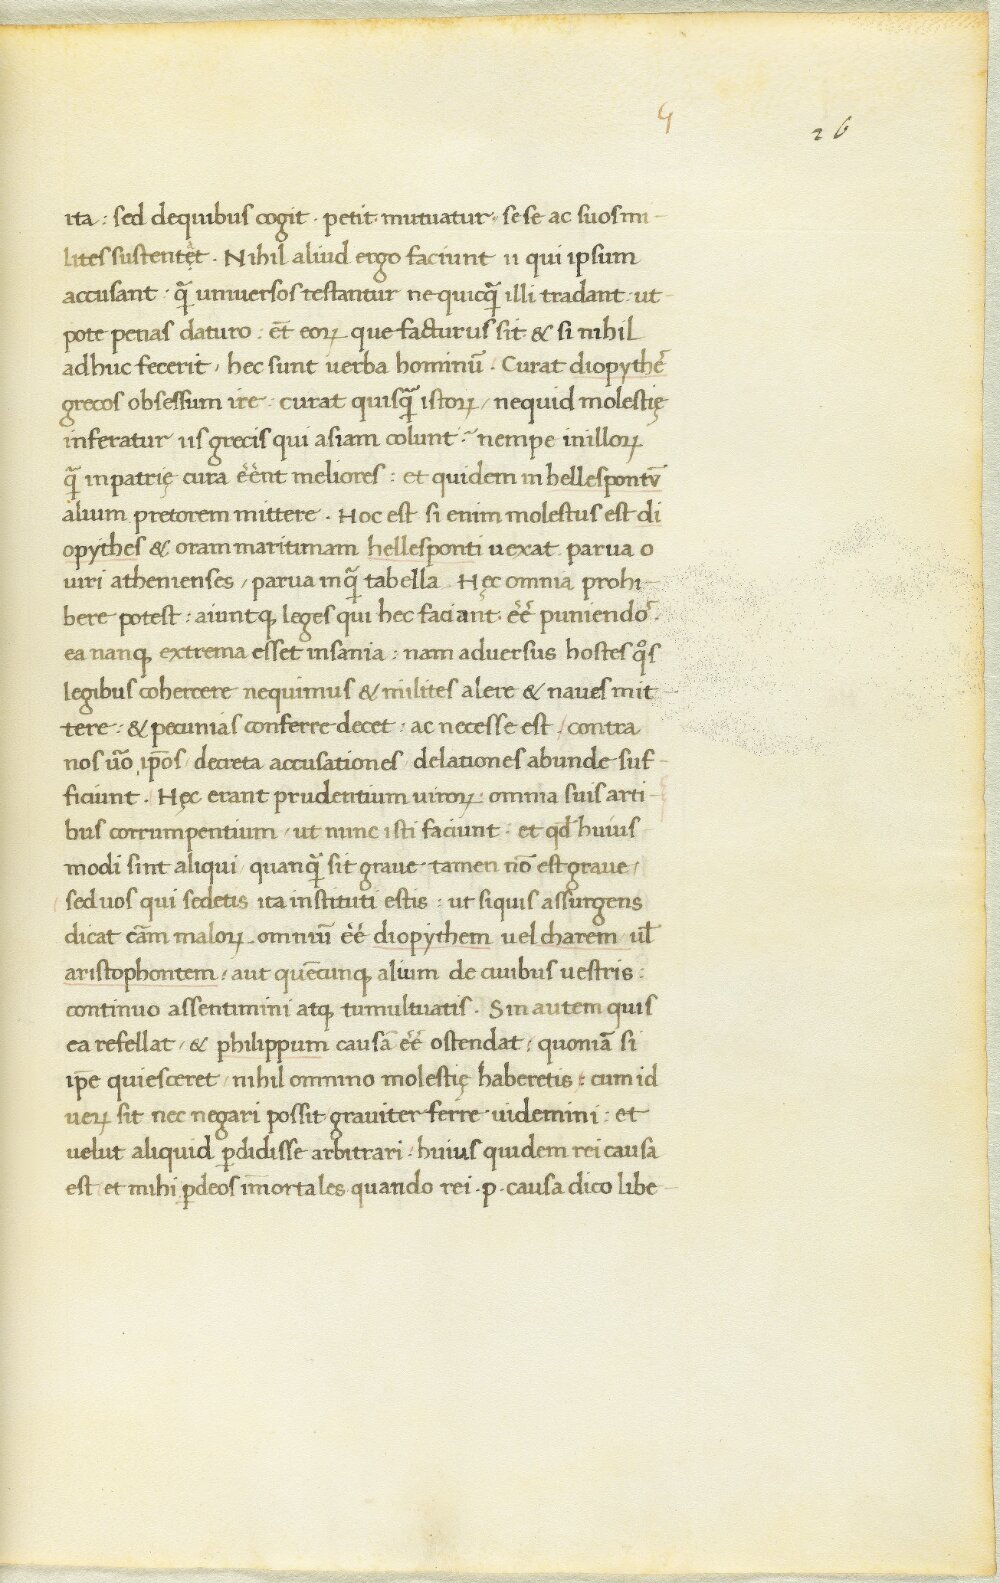 G 26
ita : sed dequibus cogit · petit mutuatur · sese ac suos mi-
lites sustentęt · Nihil aliud ergo faciunt ii qui ipsum
accusant : q̃ uniuersos testantur nequicq̃ illi tradant : ut-
pote penas daturo : et̃ eoꝝ que facturus sit & si nihil
adhuc fecerit , hec sunt uerba hominũ · Curat diopythẽ
grecos obsessum ire : curat quisq̃ istoꝝ , nequid molestię
inferatur iis grecis qui asiam colunt : nempe in illoꝝ
q̃ in patrię cura ẽẽnt meliores : et quidem in hellespontũ
alium pretorem mittere · Hoc est si enim molestus est di
opythes & oram maritimam hellesponti uexat parua o
uiri athenienses , parua inq̃ tabella Hęc omnia prohi-
bere potest : aiuntqꝫ leges qui hec faciant · ẽẽ puniendoˢ ·
ea nanqꝫ extrema esset insania : nam aduersus hostes qͦs
legibus cohercere nequimus & milites alere & naues mit-
tere : & pecunias conferre decet : ac necesse est / contra
nos ũo ip̃os , decreta accusationes , delationes abunde suf-
ficiunt · Hęc erant prudentium uiroꝝ : omnia suis arti-
bus corrumpentium , ut nunc isti faciunt · et qđ huius
modi sint aliqui , quanq̃ sit graue · tamen nõ est graue ,
sed uos qui sedetis ita instituti estis : ut siquis assurgens
dicat cãm maloꝝ omniũ ẽẽ diopythem uel charem uł
aristophontem : aut quẽcunqꝫ alium de ciuibus uestris :
continuo assentimini atqꝫ tumultuatis · Sin autem quis
ea refellat , & philippum causã ẽẽ ostendat ; quoniã si
ip̃e quiesceret , nihil omnino molestię haberetis : cum id
ueꝝ sit nec negari possit grauiter ferre uidemini : et
uelut aliquid ꝑdidisse arbitrari : huius quidem rei causa
est / et mihi ꝑ deos im̃ortales quando rei · p · causa dico libe-